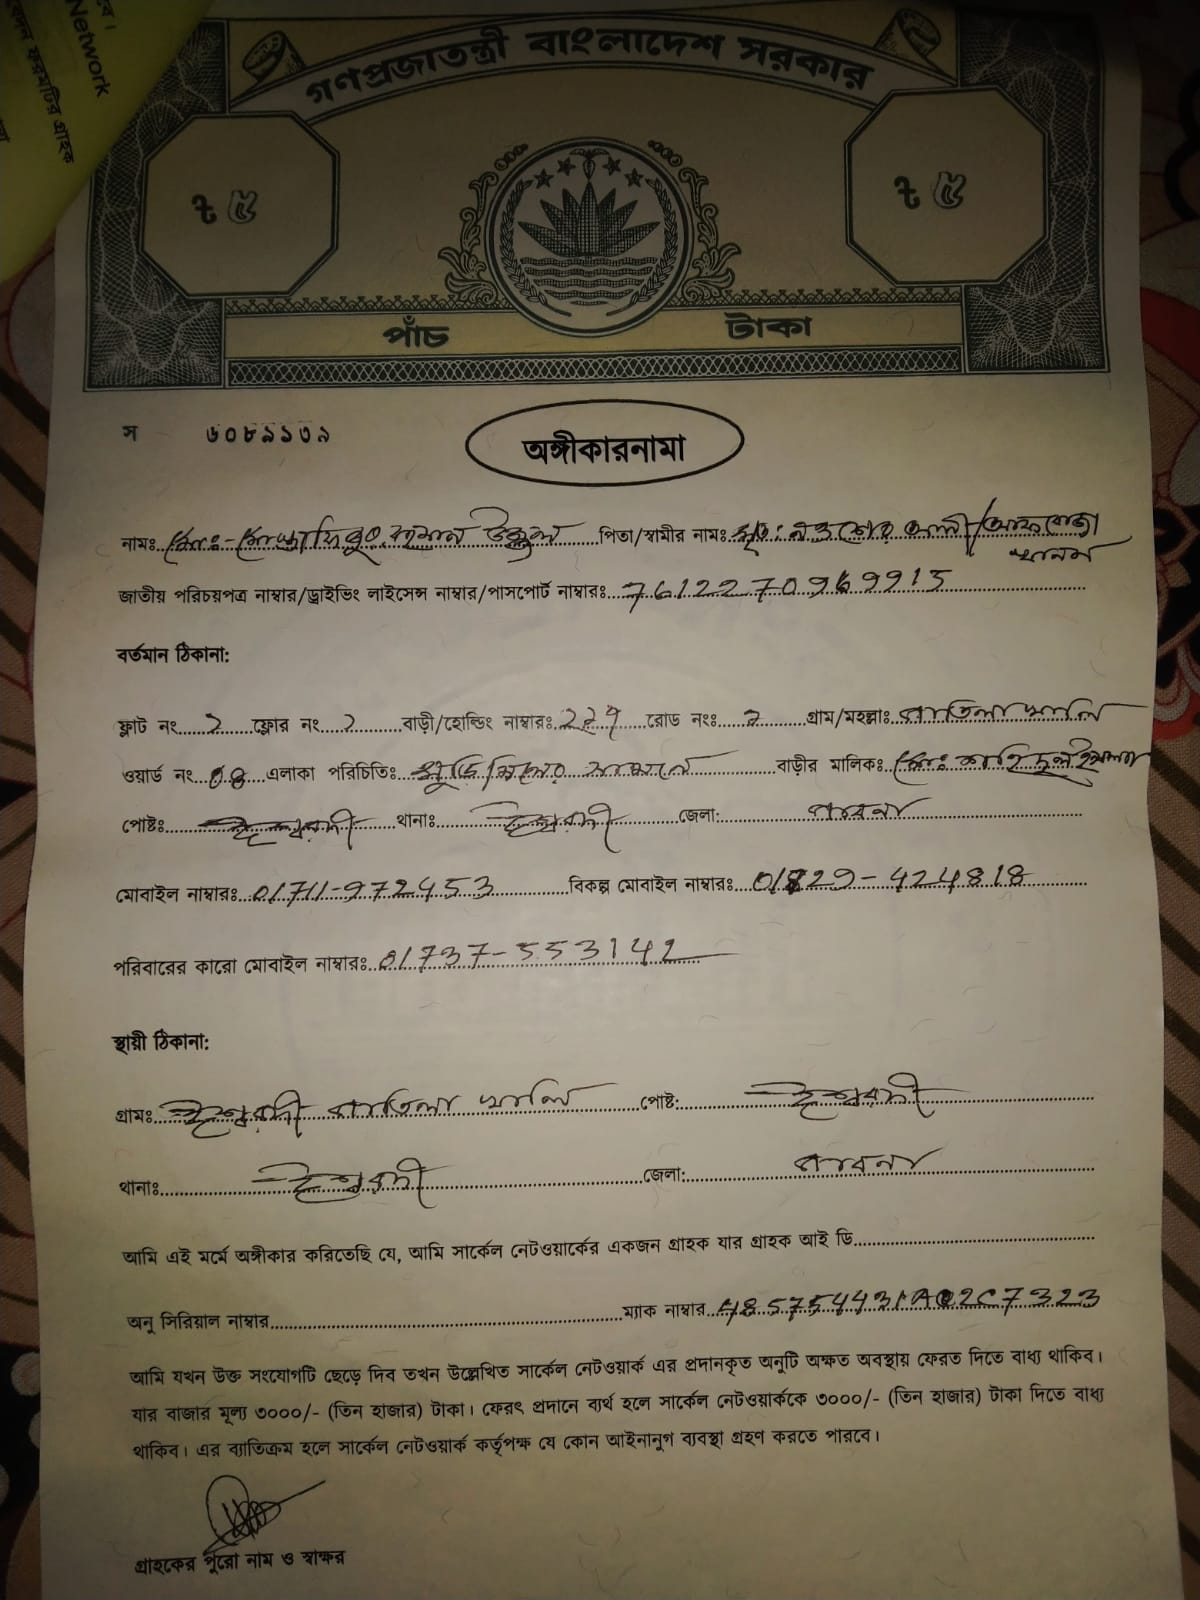 বে।
Network
বেদন ফরমটির গ্রাহক
গণপ্রজাতন্ত্রী বাংলাদেশ সরকার
৳ ৫ ৳ ৫
পাঁচ টাকা
স ৬০৮৯১৩৯
অঙ্গীকারনামা
নামঃ মোঃ- মোস্তাফিজুর রহমান উজ্জ্বল পিতা/স্বামীর নামঃ মৃত: নওশের আলী/আফরোজা
খানম
জাতীয় পরিচয়পত্র নাম্বার/ড্রাইভিং লাইসেন্স নাম্বার/পাসপোর্ট নাম্বারঃ 7612270969915
বর্তমান ঠিকানা:
ফ্লাট নং ২ ফ্লোর নং ২ বাড়ী/হোল্ডিং নাম্বারঃ রোড নংঃ ২ গ্রাম/মহল্লাঃ পাতিলাখালি
ওয়ার্ড নং 08 এলাকা পরিচিতিঃ মুড়ি মিলের সামনে বাড়ীর মালিকঃ মোঃ ইসলাম
পোষ্টঃ ঈশ্বরদী থানাঃ ঈশ্বরদী জেলা: পাবনা
মোবাইল নাম্বারঃ 01711-972453 বিকল্প মোবাইল নাম্বারঃ 01729-424818
পরিবারের কারো মোবাইল নাম্বারঃ 01737-553142
স্থায়ী ঠিকানা:
গ্রামঃ ঈশ্বরদী পাতিলা খালি পোষ্ট: ঈশ্বরদী
থানাঃ ঈশ্বরদী জেলা: পাবনা
আমি এই মর্মে অঙ্গীকার করিতেছি যে, আমি সার্কেল নেটওয়ার্কের একজন গ্রাহক যার গ্রাহক আই ডি
অনু সিরিয়াল নাম্বার ম্যাক নাম্বার 485754431A02C7323
আমি যখন উক্ত সংযোগটি ছেড়ে দিব তখন উল্লেখিত সার্কেল নেটওয়ার্ক এর প্রদানকৃত অনুটি অক্ষত অবস্থায় ফেরত দিতে বাধ্য থাকিব।
যার বাজার মূল্য ৩০০০/- (তিন হাজার) টাকা। ফেরৎ প্রদানে ব্যর্থ হলে সার্কেল নেটওয়ার্ককে ৩০০০/- (তিন হাজার) টাকা দিতে বাধ্য
থাকিব। এর ব্যাতিক্রম হলে সার্কেল নেটওয়ার্ক কর্তৃপক্ষ যে কোন আইনানুগ ব্যবস্থা গ্রহণ করতে পারবে।
গ্রাহকের পুরো নাম ও স্বাক্ষর